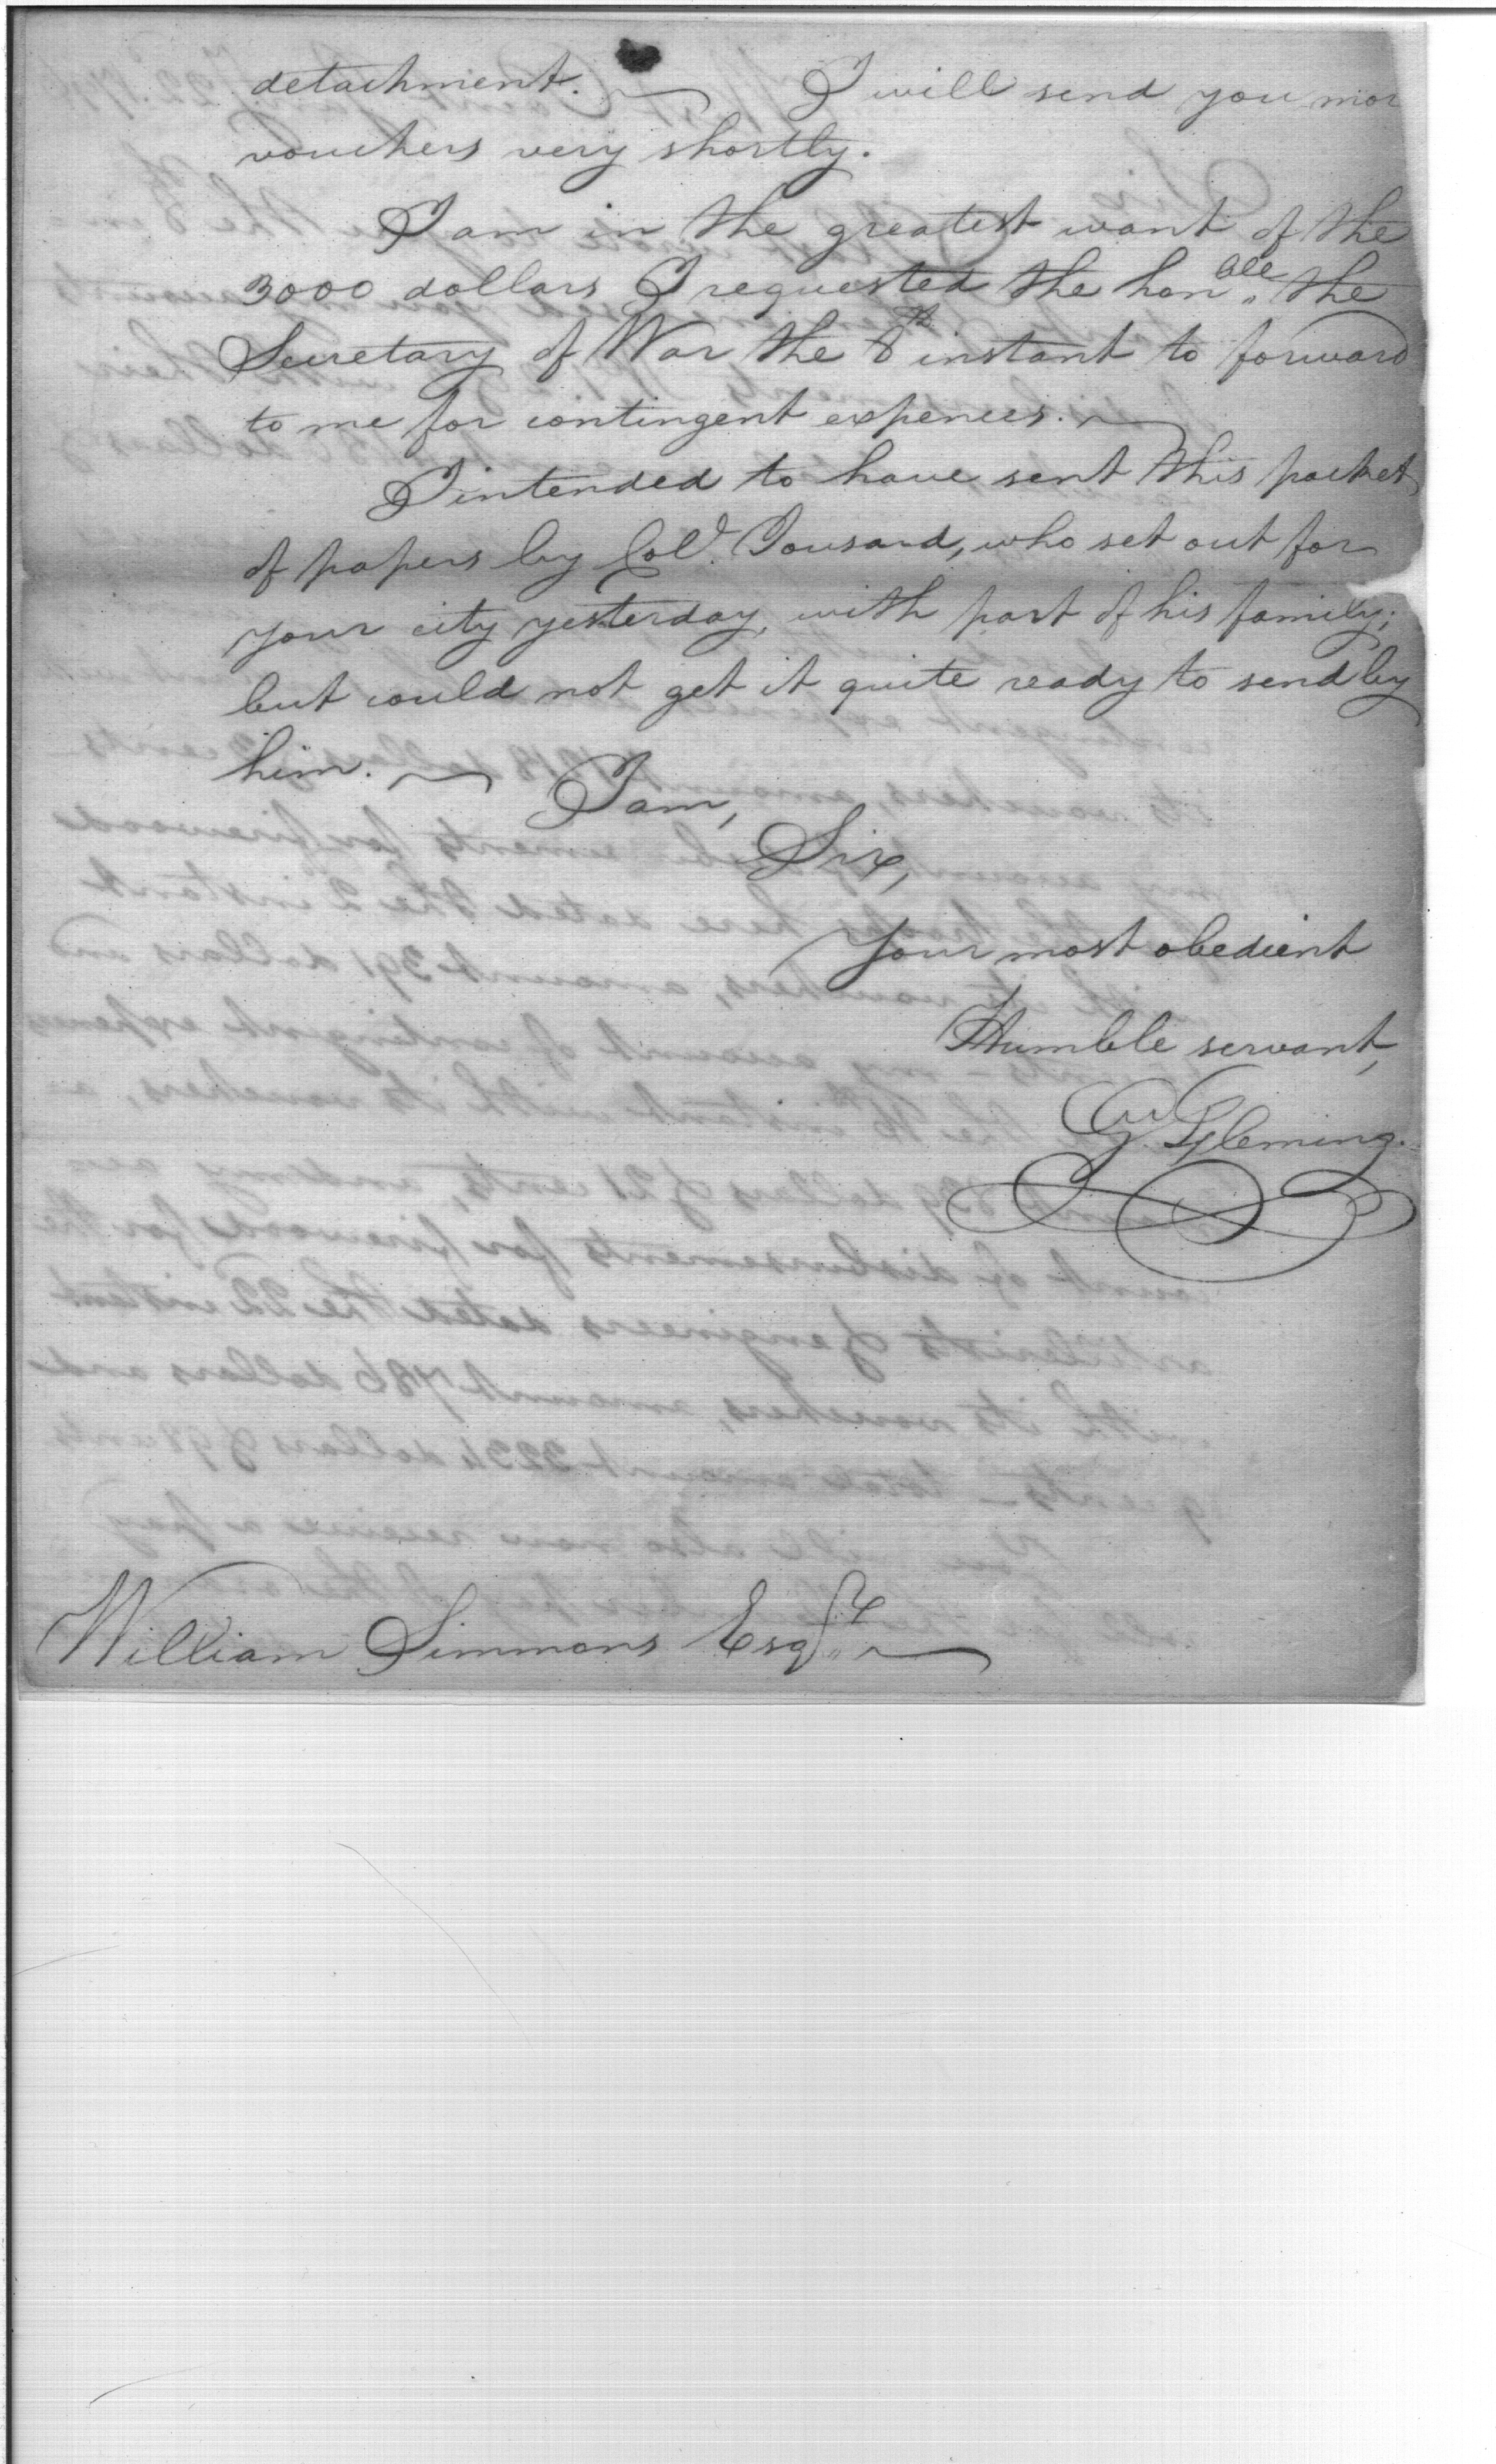 detachment. ~ I will send you mor
vouchers very shortly.
I am in the greatest want of the
3000 dollars I requested the hon.ble the
Secretary of War the 8th instant to forward
to me for contingent expences. ~
I intended to have sent this packet
of papers by Col.l Tousard, who set out for
your city yesterday, with part of his family;
but could not get it quite ready to send by
him. ~ I am,
Sir,
Your most obedient
Humble servant,
G.w Fleming.
William Simmons Esq.r ~